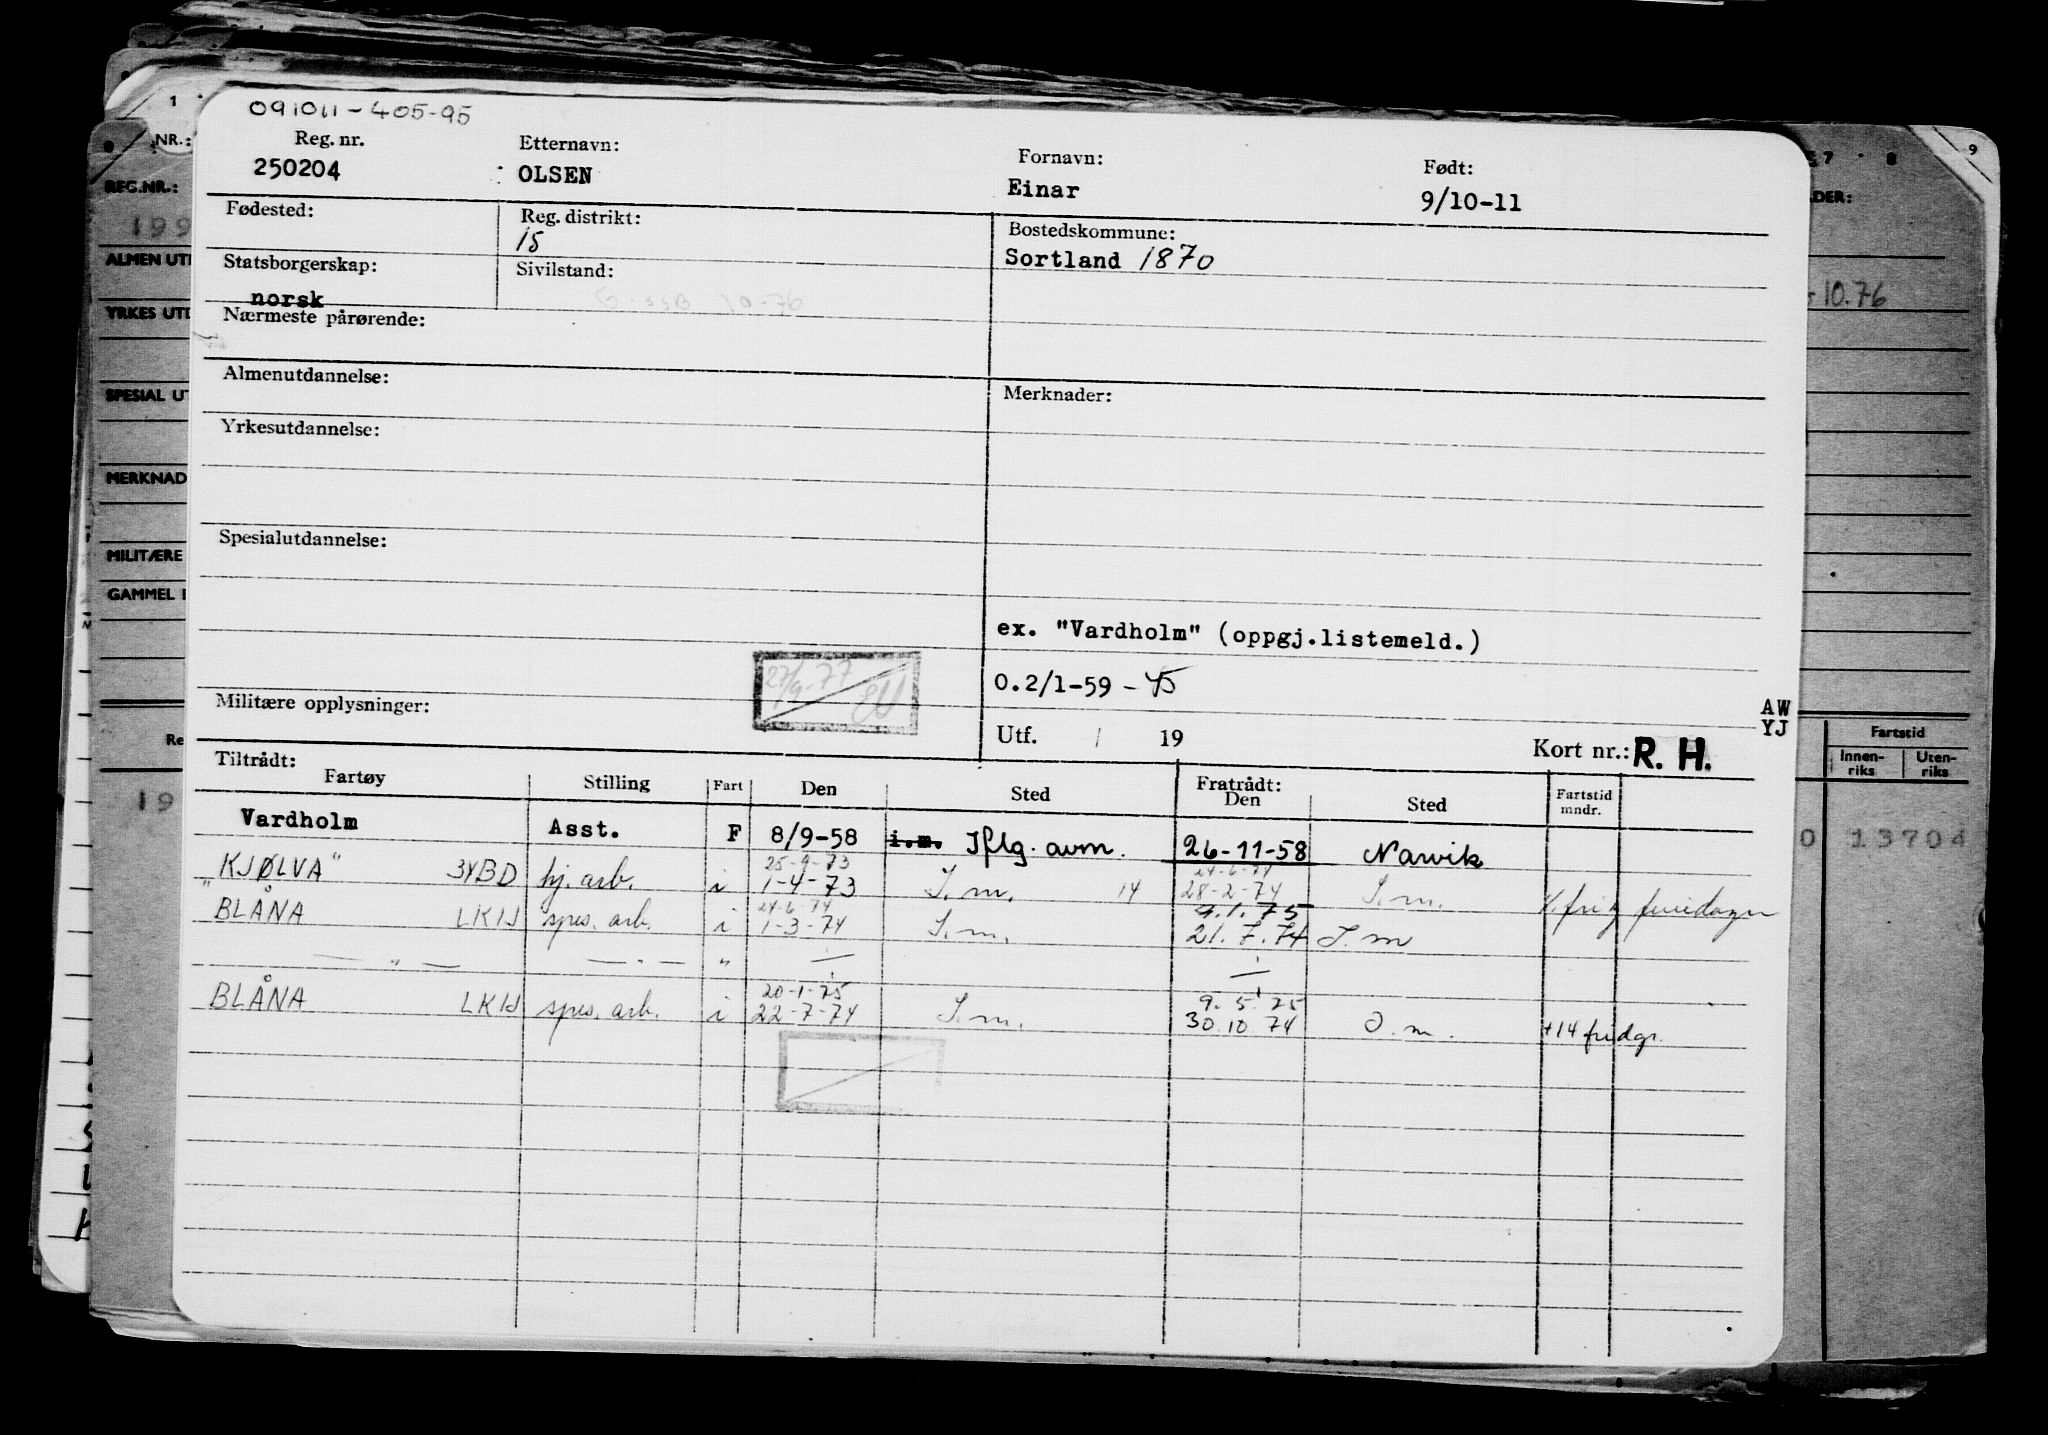 091011-405-95
Reg. nr. Etternavn: Fornavn: Født:
250204 OLSEN Einar 9/10-11
Fødested: Reg. distrikt: Bostedskommune:
15 Sortland 1870
Statsborgerskap: Sivilstand:
norsk
Nærmeste pårørende:
Almenutdannelse: Merknader:
Yrkesutdannelse:
Spesialutdannelse:
ex. "Vardholm" (oppgj.listemeld.)
27/9-77
0.2/1-59 - 
Militære opplysninger:
AW
YJ
Utf. / 19 Kort nr.: R. H.
Tiltrådt: Fratrådt:
Fartøy Stilling Fart Den Sted Den Sted Fartstid mndr.
Vardholm Asst. F 8/9-58 i.m. Iflg. avm. 26-11-58 Narvik
25-9-73 24-6-74
"KJØLVA" 3YBD hj. arb. i 1-4-73 I.m. 14 28-2-74 I.m.
24-6-74 9.1.75
BLÅNA LKIJ spes. arb. i 1-3-74 I.m. 21.7.74 I.m
— " — — " — " — —
20-1-75 9.5.75
BLÅNA LKIJ spes. arb. i 22-7-74 I.m. 30.10.74 I.m. +14 fridgr.
1
NR.:
REG.NR.:
199
ALMEN UTD
YRKES UTD
SPESIAL UT
MERKNAD
MILITÆRE
GAMMEL I
Re
19
7 8 9
DER:
10.76
Fartstid
Innen-riks Uten-riks
0 13704